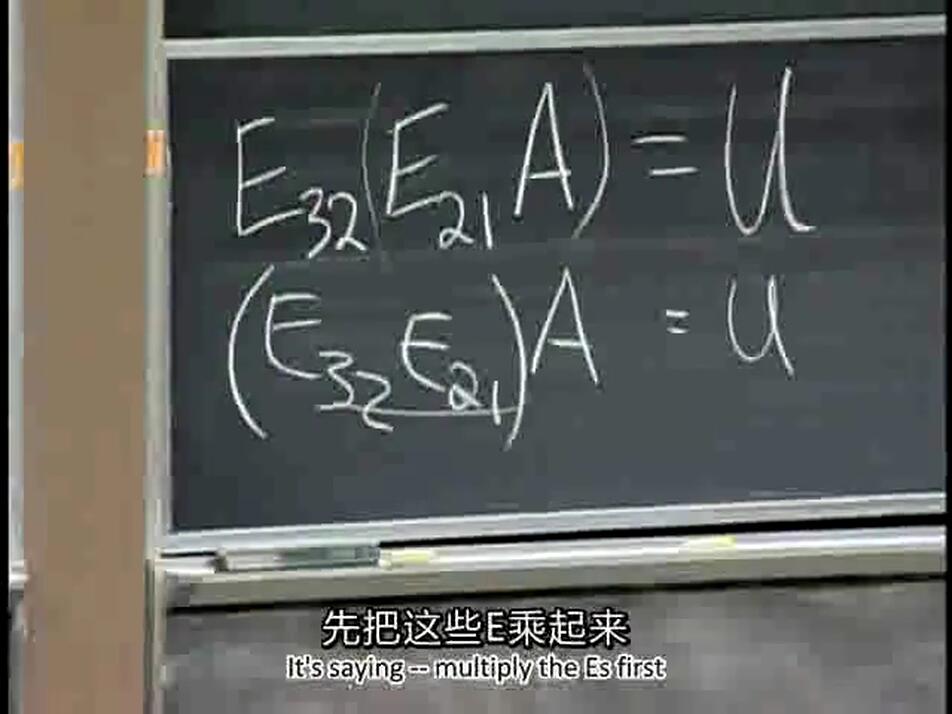 E₃₂(E₂₁A) = U
(E₃₂E₂₁)A = U
先把这些E乘起来
It's saying -- multiply the Es first